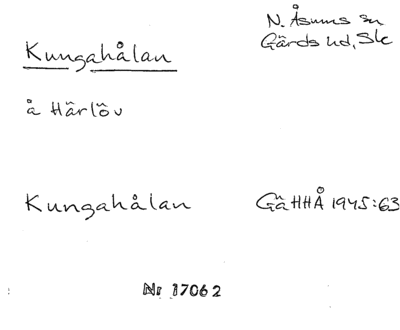 N. Åsums sn
Kungahålan
Gärds hd, Sk
å Härlöv
Kungahålan GäHHÅ 1945:63
Nr 17062